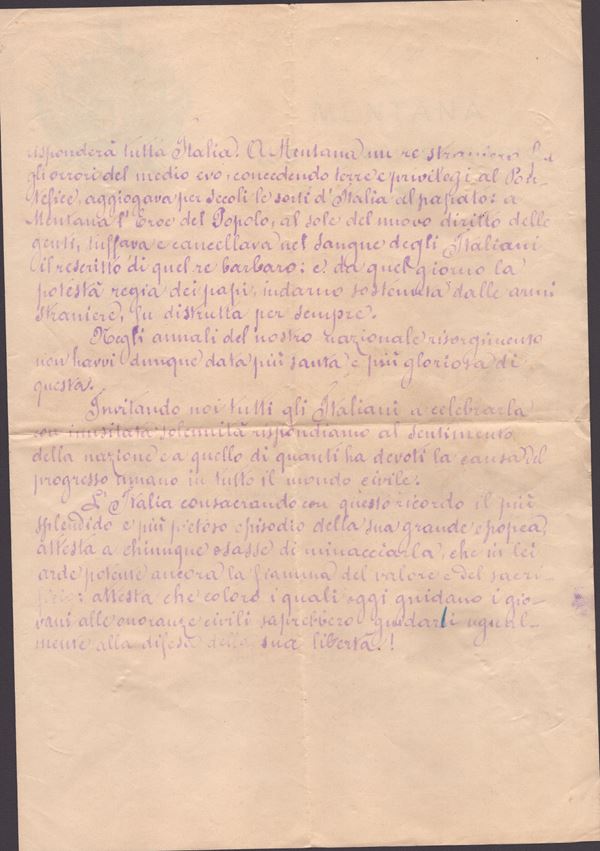 MENTANA
risponderà tutta Italia. A Mentana un re straniero fra
gli orrori del medio evo, concedendo terre e privilegi al Pon-
tefice, aggiogava per secoli le sorti d'Italia al papato: a
Mentana l'Eroe del Popolo, al sole del nuovo diritto delle
genti, tuffava e cancellava nel sangue degli Italiani
il rescritto di quel re barbaro: e da quel giorno la
potestà regia dei papi, indarno sostenuta dalle armi
straniere, fu distrutta per sempre.
Negli annali del nostro nazionale risorgimento
non havvi dunque data più santa e più gloriosa di
questa.
Invitando noi tutti gli Italiani a celebrarla
con inusitata solennità rispondiamo al sentimento
della nazione e a quello di quanti ha devoti la causa del
progresso umano in tutto il mondo civile.
L'Italia consacrando con questo ricordo il più
splendido e più pietoso episodio della sua grande epopea,
attesta a chiunque osasse di minacciarla, che in lei
arde potente ancora la fiamma del valore e del sacri-
ficio: attesta che coloro i quali oggi guidano i gio-
vani alle onoranze civili saprebbero guidarli ugual-
mente alla difesa della sua libertà.!